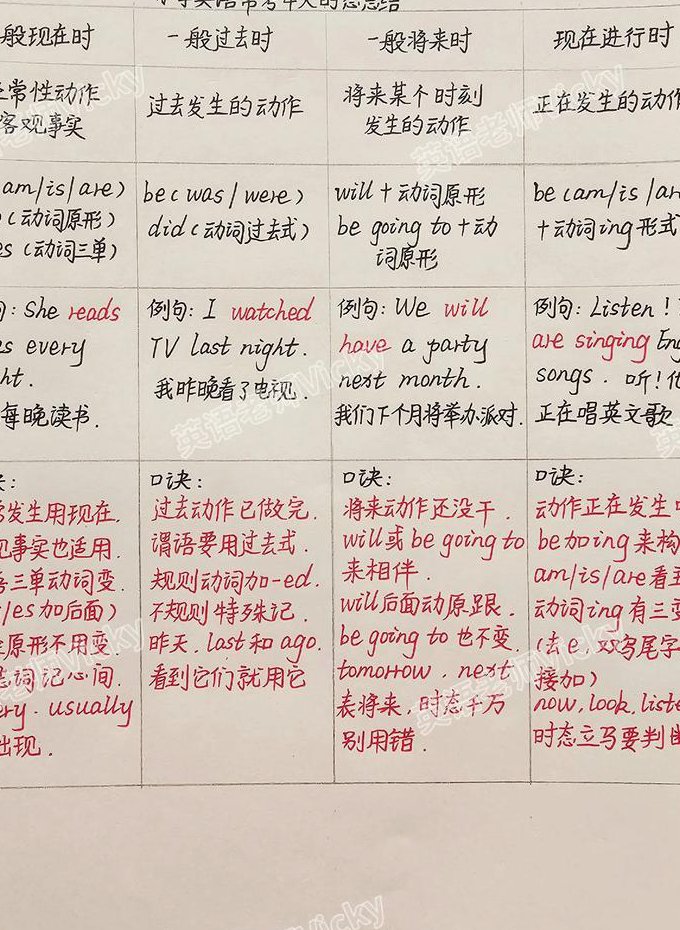 般现在时
一般过去时
一般将来时
现在进行时
常性动作
客观事实
过去发生的动作
将来某个时刻
发生的动作
正在发生的动作
am/is/are)
(动词原形)
es (动词三单)
be(was/were)
did(动词过去式)
will+动词原形
be going to+动
词原形
be (am/is/are
+动词ing形式
: She reads
every
ht.
每晚读书.
例句: I watched
TV last night.
我昨晚看了电视.
例句: We will
have a party
next month.
我们下个月将举办派对.
例句: Listen!
are singing Eng
songs. 听!他
正在唱英文歌
:
发生用现在.
事实也适用.
三单动词变.
/es加后面)
原形不用变.
词记心间.
ery. usually
出现.
口诀:
过去动作已做完.
谓语要用过去式.
规则动词加-ed.
不规则特殊记.
昨天. last和ago.
看到它们就用它
口诀:
将来动作还没干.
will或be going to
来相伴.
will后面动原跟.
be going to也不变.
tomorrow. next
表将来,时态千万
别用错.
口诀:
动作正在发生
be加ing来构
am/is/are看
动词ing有三变
(去e,双写尾字
接加)
now, look, liste
时态立马要判断
英语老师Vicky
英语老师Vicky
英语老师Vicky
Vicky